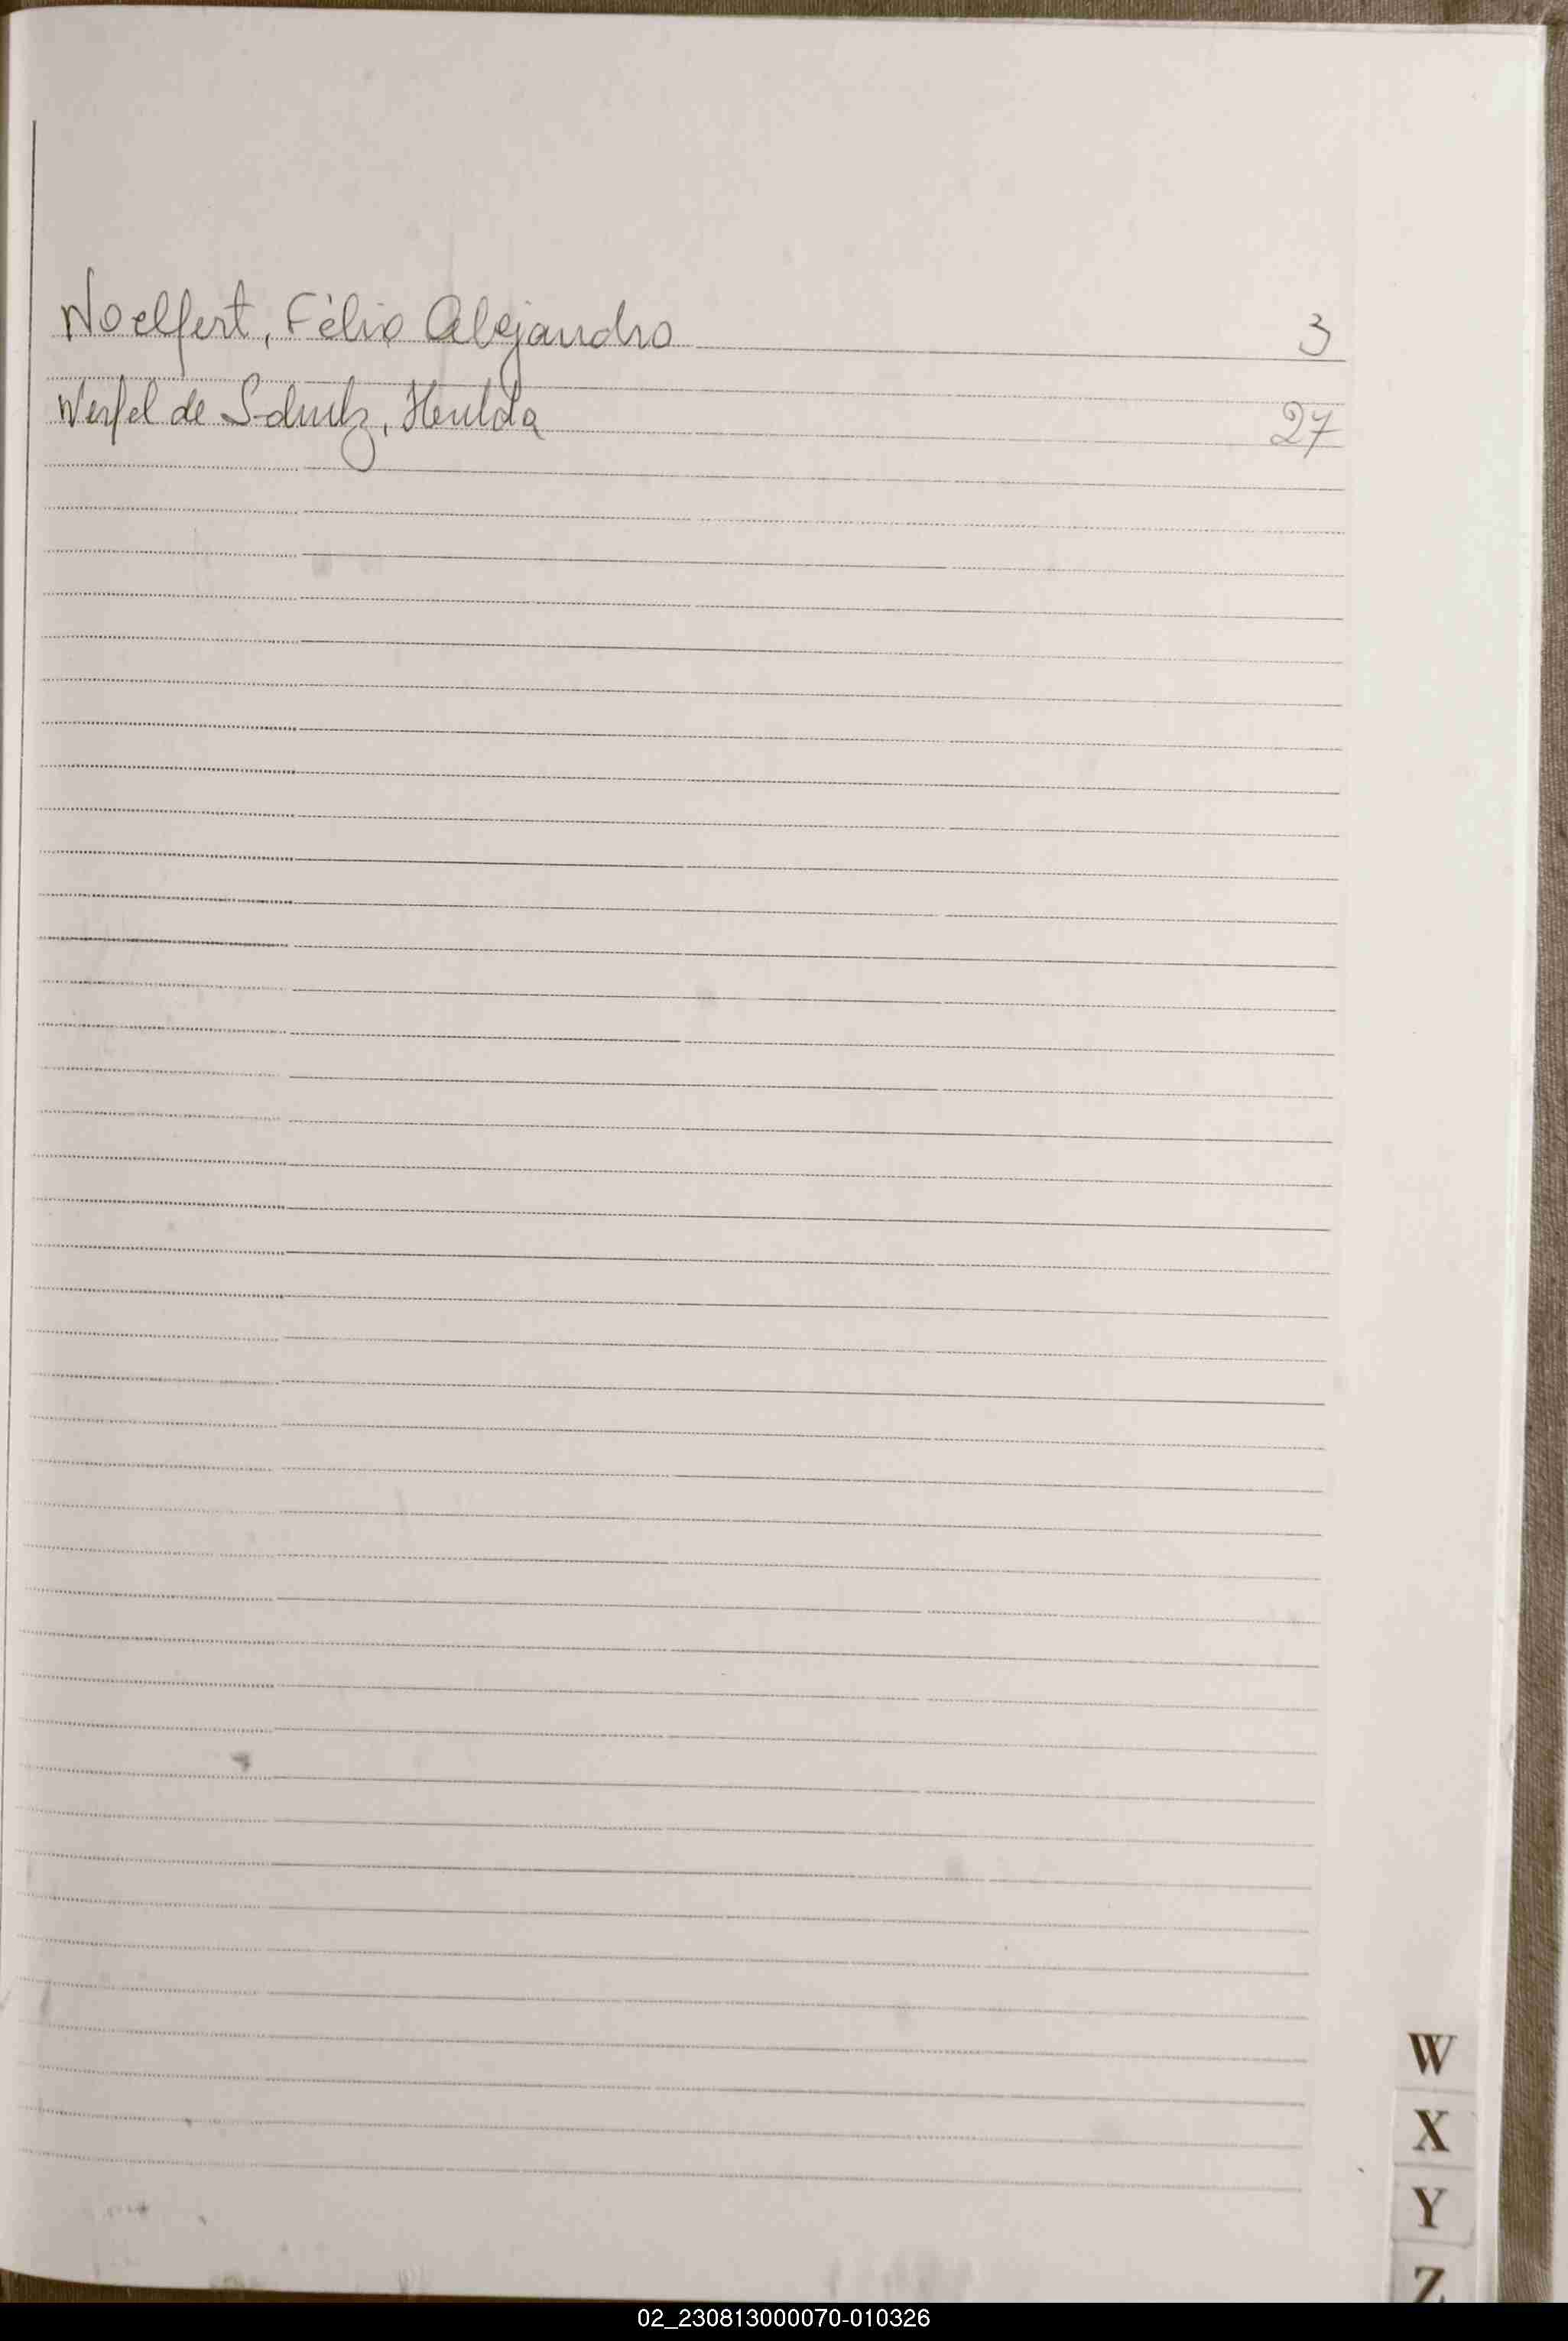 Woelfert, Félix Alejandro 3
Werfel de Schultz, Hen​lda 27
W
X
Y
Z
02_230813000070-010326